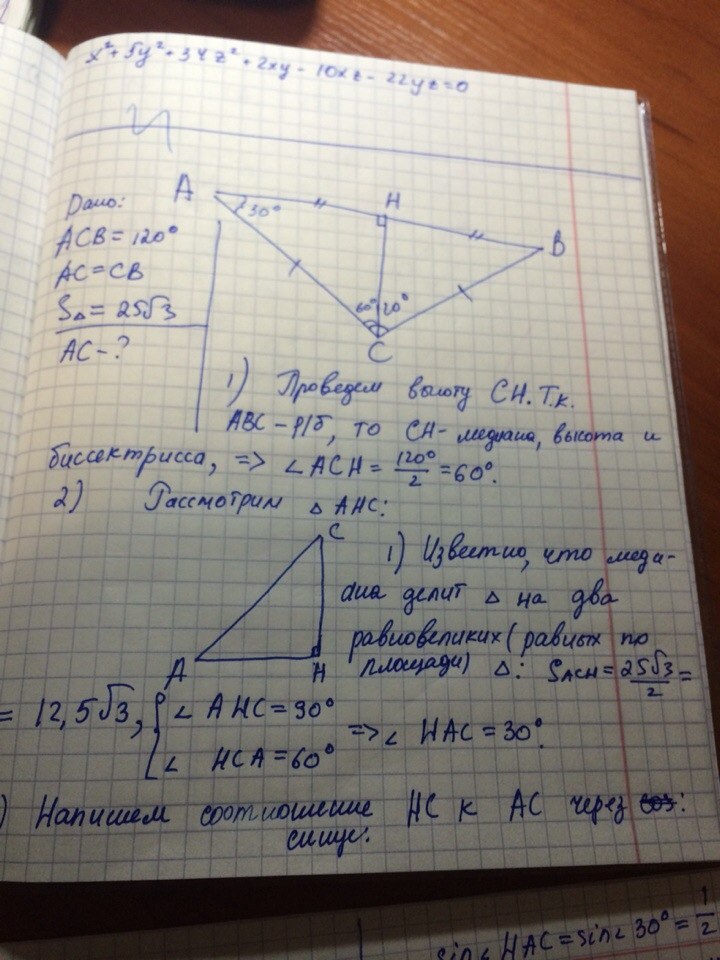 x²+5y²+34z²+2xy-10xz-22yz=0
Дано:
ACB=120°
AC=CB
S△=25√3
AC-?
A
30°
H
B
60°
20°
C
1) Проведем высоту CH. Т.к.
ABC-р/б, то CH-медиана, высота и
биссектрисса, => ∠ACH=120°/2=60°.
2) Рассмотрим △AHC:
C
A
H
1) Известно, что меди-
ана делит △ на два
равновеликих(равных по
площади) △: SACH=25√3/2=
= 12,5√3, { ∠AHC=90°
∠HCA=60° =>∠HAC=30°.
) Напишем соотношение HC к AC через :
синус.
sin∠HAC=sin∠30°=1/2